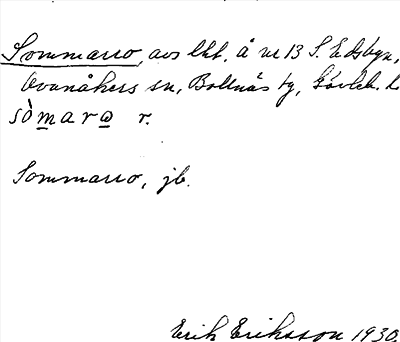 Sommarro, avs lht. å nr 13 S. Edsbyn,
Ovanåkers sn, Bollnäs tg, Gävleb. l.
sòmarω r.
Sommarro, jb.
Erik Eriksson 1930.